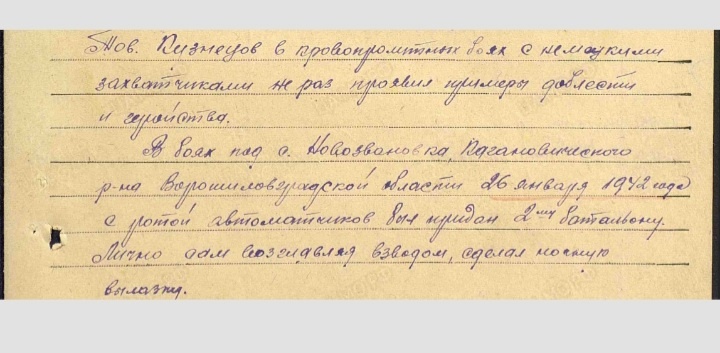 Тов. Кузнецов в кровопролитных боях с немецкими
захватчиками не раз проявил примеры доблести
и геройства.
В боях под с. Новозвановка, Кагановического
р-на Ворошиловградской области 26 января 1942 года
с ротой автоматчиков был придан 2му батальону.
Лично сам возглавляя взводом, сделал ночную
вылазку.